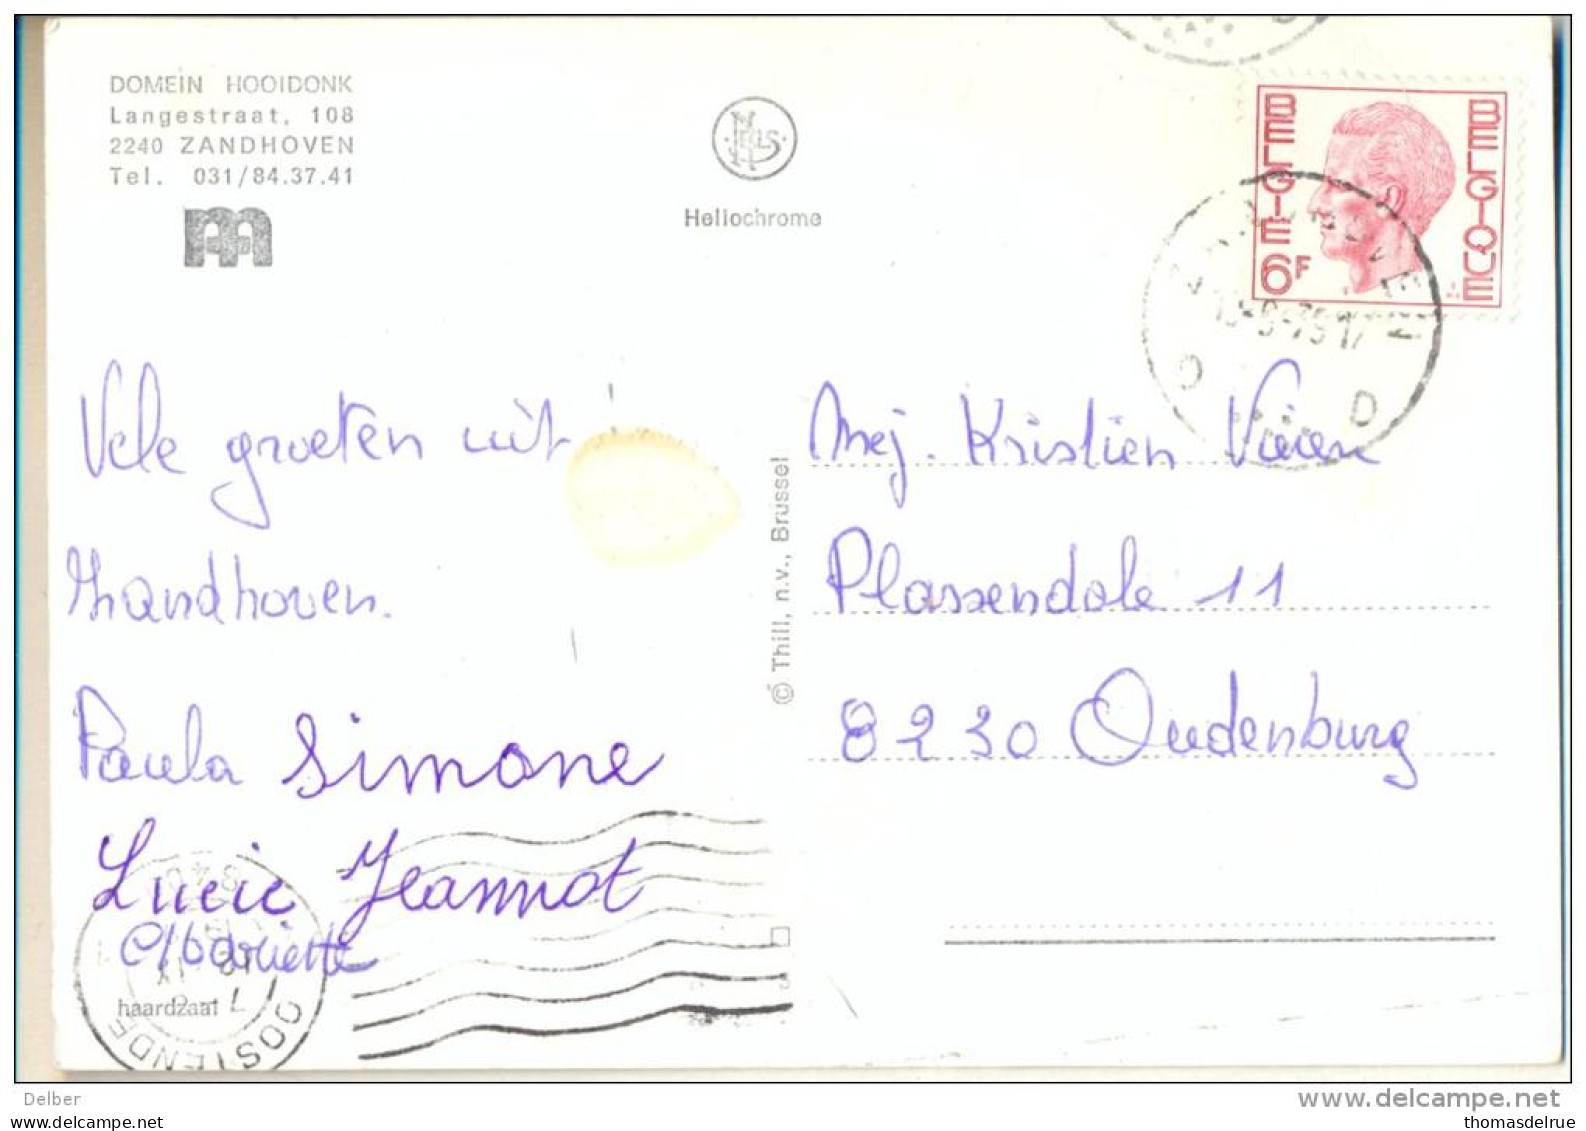 DOMEIN HOOIDONK
Langestraat, 108
2240 ZANDHOVEN
Tel. 031/84.37.41
NELS
Heliochrome
BELGIE
6F
BELGIQUE
ZANDHOVEN
D D
Vele groeten uit
Zandhoven.
Paula Simone
Lucie Jeannot
Mariette
haardzaal
OOSTENDE
© Thill, n.v., Brussel
Mej. Kristien
Plassendale 11
8230 Oudenburg
Delber
www.delcampe.net
My own work
thomasdelrue